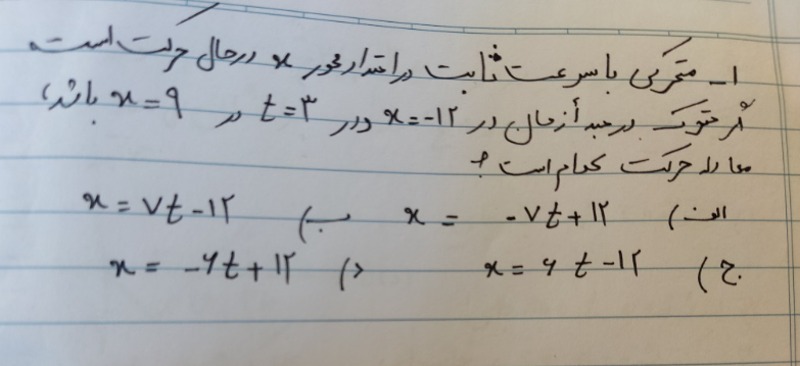 ۱ـ متحرکی با سرعت ثابت در امتداد محور x در حال حرکت است
اگر متحرک در مبدأ زمان در x=-۱۲ و در t=۳ در x=۹ باشد،
معادله حرکت کدام است؟
الف) x = -۷t+۱۲ ب) x = ۷t-۱۲
ج) x = ۶t-۱۲ د) x = -۶t+۱۲